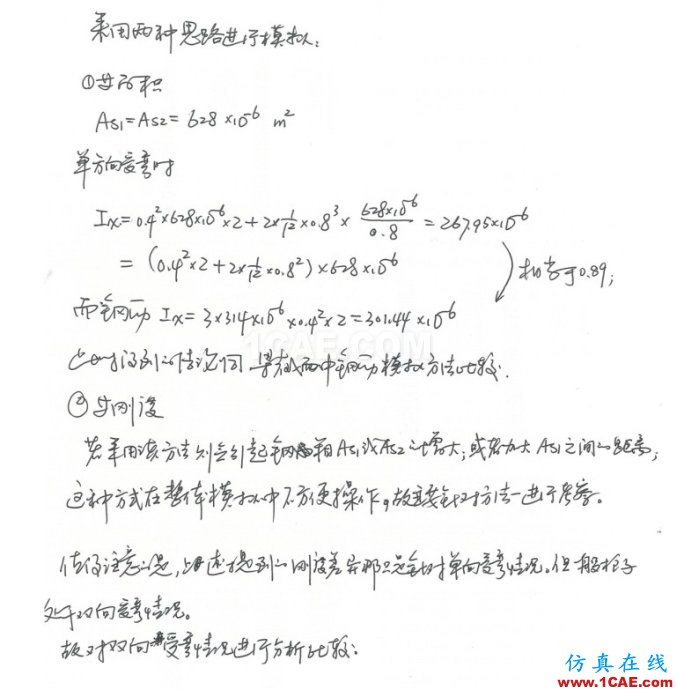 采用两种思路进行模拟:
①等面积
As1=As2=628×10⁻⁶ m²
单方向受弯时
Ix=0.4²×628×10⁻⁶×2+2×1/12×0.8³×628×10⁻⁶/0.8=267.95×10⁻⁶
=(0.4²×2+2×1/12×0.8²)×628×10⁻⁶ 相当于0.89;
而钢筋Ix=3×314×10⁻⁶×0.4²×2=301.44×10⁻⁶
1CAE.COM
此时得到的结论同单截面中钢筋模拟方法比较.
②等刚度
若采用该方法则会引起钢筋As1或As2的增大;或者加大As1之间的距离;
这种方式在整体模拟中不方便操作,故针对方法一进行考察。
值得注意的是,上述提到的刚度差异那只是针对单向受弯情况。但一般柱子
处于双向受弯情况。
故对双向受弯情况进行分析比较:
仿真在线
www.1CAE.com